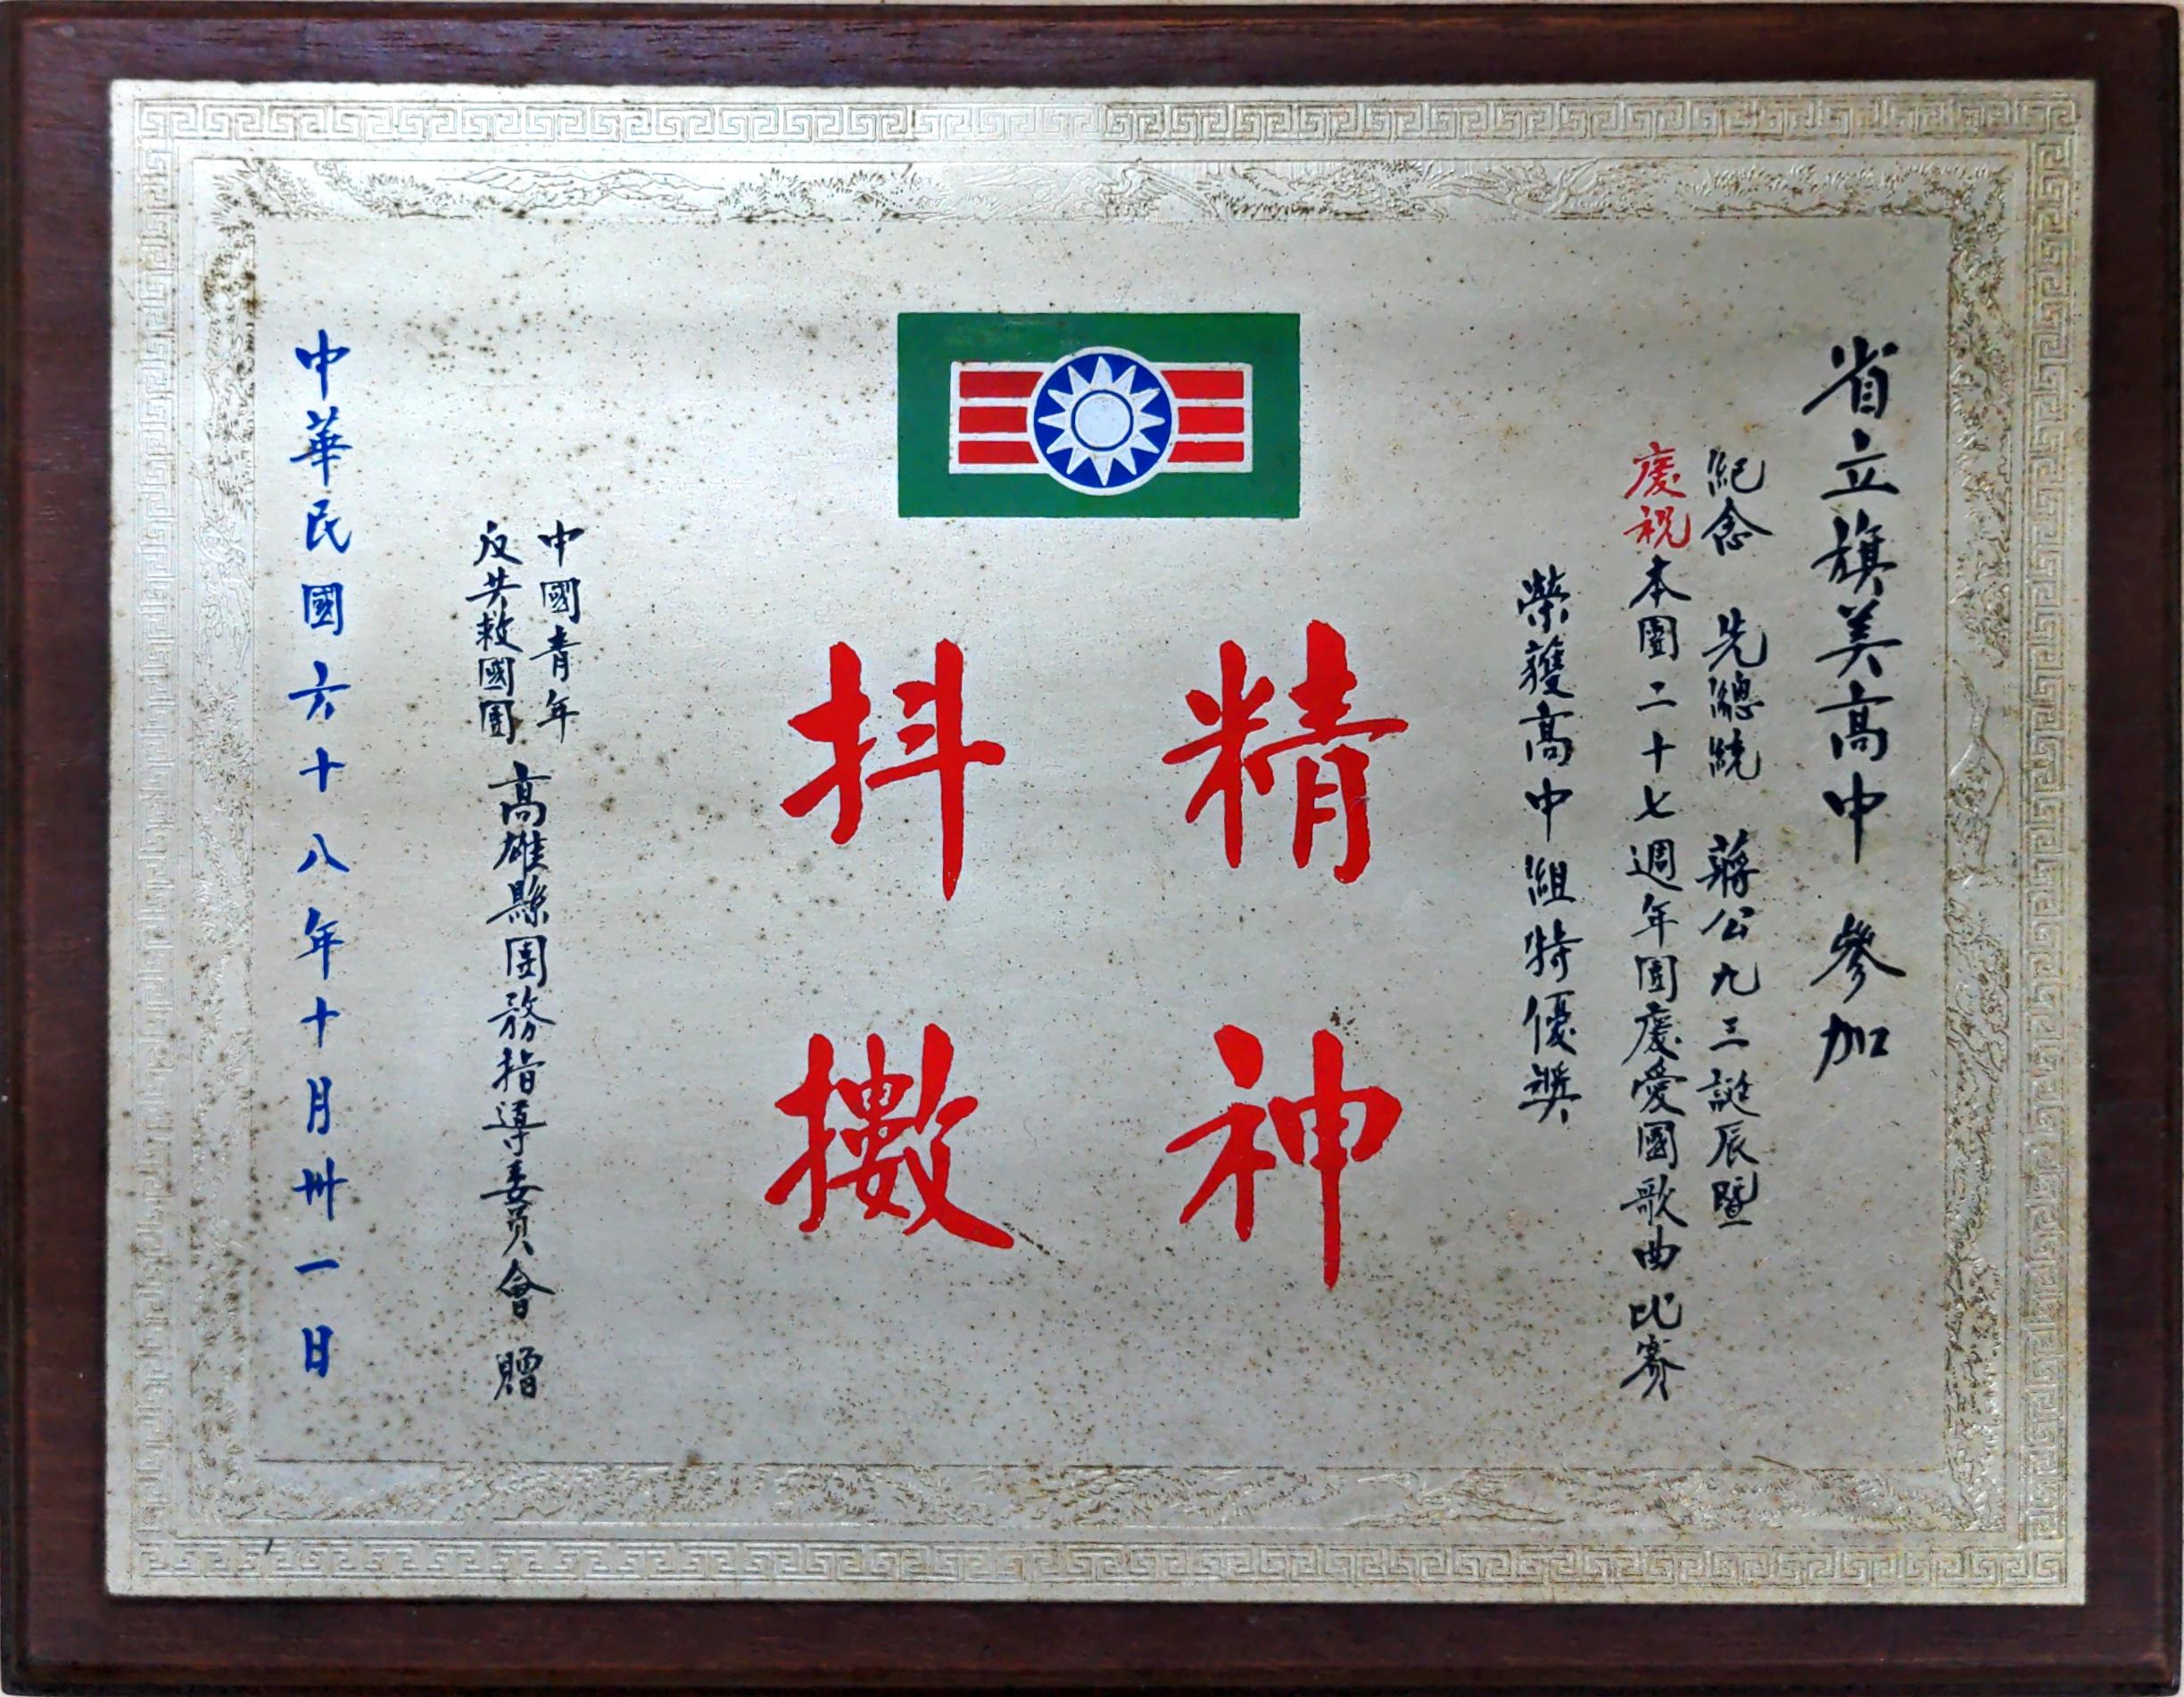 省立旗美高中 參加
紀念 先總統 蔣公九三誕辰暨
慶祝本團二十七週年團慶愛國歌曲比賽
榮獲高中組特優獎
精神
抖擻
中國青年
反共救國團
高雄縣團務指導委員會 贈
中華民國六十八年十月卅一日